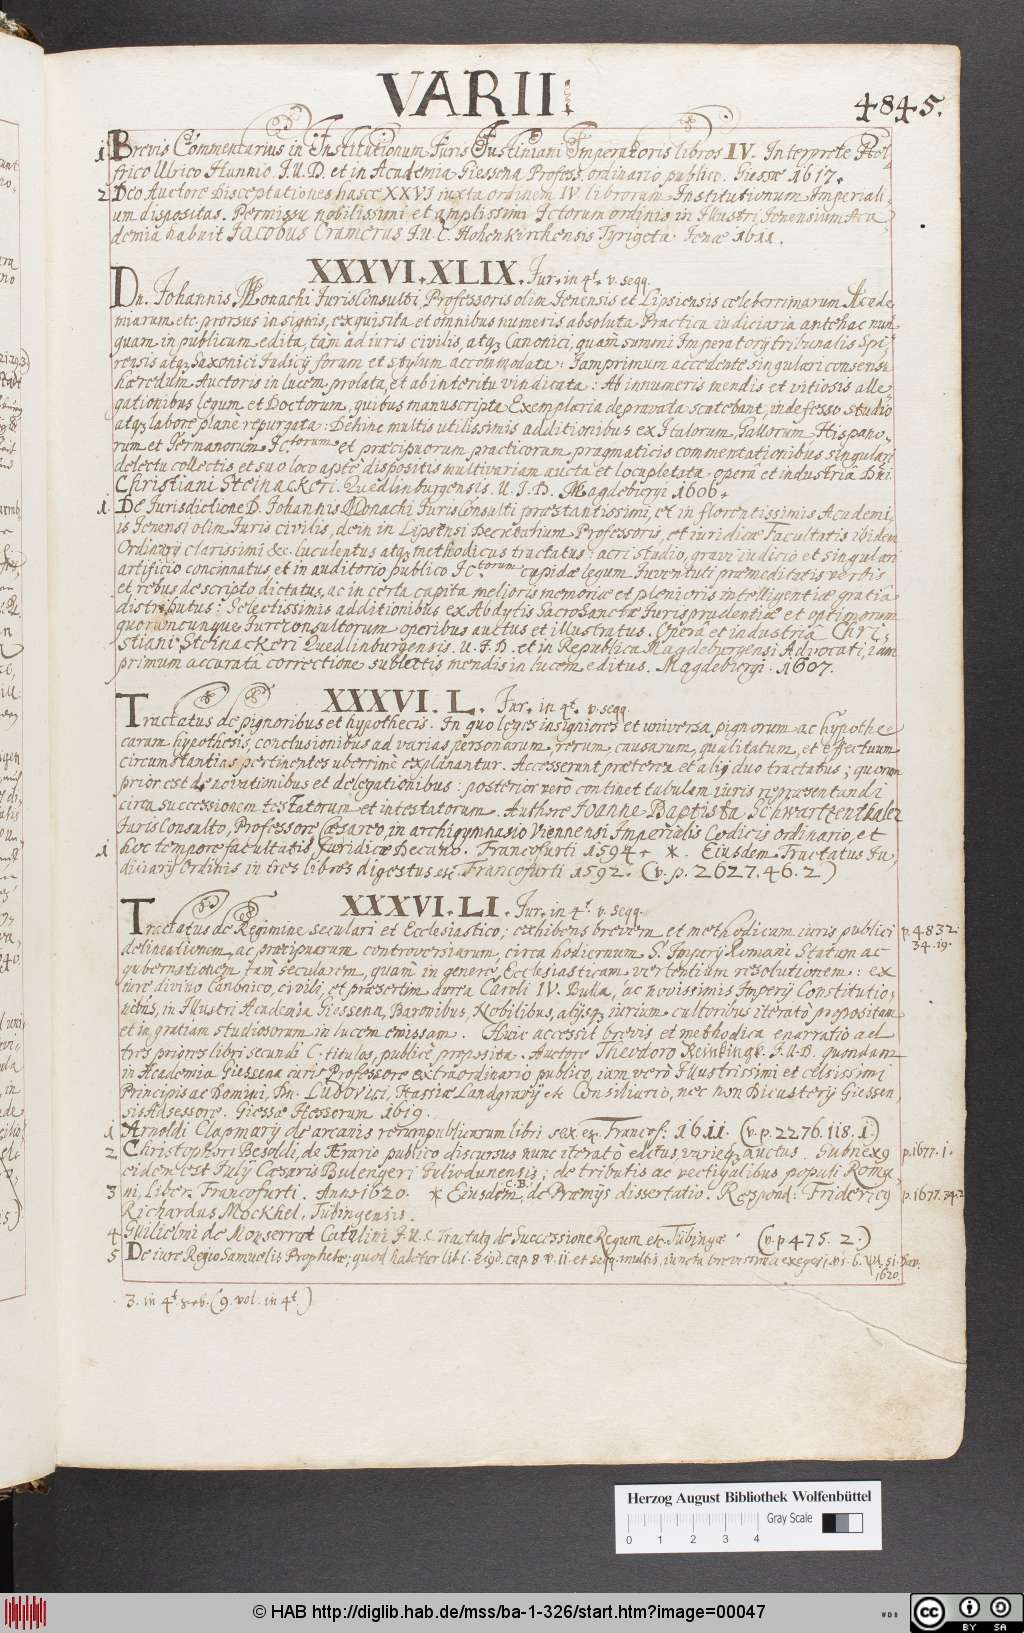 VARII
4845.
1. Brevis Commentarius in Institutionum Juris Justiniani Imperatoris libros IV. Interprete Hel-
frico Ulrico Hunnio J.U.D. et in Academia Giessena Profess. ordinario publico. Giessæ 1617.
2. Dco Auctore Disceptationes hasce XXVI iuxta ordinem IV. librorum Institutionum Imperiali-
um dispositas. Permissu nobilissimi et amplissimi Jctorum ordinis in Illustri Jenensium Aca-
demia habuit Jacobus Cramerus J.U.C. Hohenkirchensis Tyrigeta. Jenæ 1611.
XXXVI.XLIX. Jur. in 4t. v. seqq.
Dn. Johannis Monachi JurisConsulti Professoris olim Jenensis et Lipsiensis celeberrimarum Acade-
miarum etc. prorsus insignis, exquisita et omnibus numeris absoluta Practica iudiciaria antehac nun-
quam in publicum edita, tàm ad iuris civilis, atq3 Canonici, quam summi Imperatorÿ tribunalis Spi-
rensis atq3 Saxonici Judicÿ forum et stylum accommodata: Jam primum accedente singulari consensu
hæredum Auctoris in lucem prolata, et ab interitu vindicata: Ab innumeris mendis et vitiosis alle-
gationibus legum et Doctorum, quibus manuscripta Exemplaria depravata scatebant, indefesso studio
atq3 labore plane repurgata: Dehinc multis utilissimis additionibus ex Italorum, Gallorum Hispano-
rum et Germanorum Jctorum et præcipuorum practicorum pragmaticis commentationibus singulari
delectu collectis et suo loco aptè dispositis multivariam aucta et locupletata operâ et industriâ Dni.
Christiani Steinackeri. Quedlinburgensis. U.J.D. Magdeburgi 1606.
1. De Jurisdictione D. Johannis Monachi JurisConsulti præstantissimi, et in florentissimis Academi-
is Jenensi olim Juris civilis, dein in Lipsensi Decretalium Professoris, et iuridicæ Facultatis ibidem
Ordinarÿ clarissimi &c. luculentus atq3 methodicus tractatus: acri studio, gravi iudicio et singulari
artificio concinnatus et in auditorio publico Jctorum cupidæ legum Juventuti præmeditatis verbis
et rebus descripto dictatus, ac in certa capita melioris memoriæ et plenioris intelligentiæ gratiâ
distributus: Selectissimis additionibus ex Abdytis SacroSanctæ Jurisprudentiæ et optimorum
quorumcunque Jurconsultorum operibus auctus et illustratus. Operâ et industriâ Chri-
stiani Steinackeri Quedlinburgensis. U.J.D. et in Republica Magdeburgensi Advocati, iam
primum accurata correctione sublectis mendis in lucem editus. Magdeburgi. 1607.
XXXVI.L. Jur. in 4t. v. seqq.
Tractatus de pignoribus et hypothecis. In quo leges insigniores et universa, pignorum ac hypothe-
carum hypothesis, conclusionibus ad varias personarum, rerum, causarum, qualitatum, et effectuum
circumstantias pertinentes uberrimè explanantur. Accesserunt præterea et aliÿ duo tractatus; quorum
prior est de novationibus et delegationibus: posterior verò continet tabulam iuris repræsentandi
circa successionem testatorum et intestatorum. Authore Joanne Baptista Schwartzenthaler
JurisConsulto, Professore Cæsareo, in archigymnasio Viennensi Imperialis Codicis ordinario, et
1 hoc tempore facultatis Juridicæ Decano. Francofurti 1594. * Eiusdem Tractatus Ju-
diciarÿ Ordinis in tres libros digestus etc. Francofurti 1592. (v.p. 2627.46.2)
XXXVI.LI. Jur. in 4t. v. seqq.
Tractatus de Regimine seculari et Ecclesiastico; exhibens brevem et methodicum iuris publici
p.4832.
34.19.
delineationem, ac præcipuarum controversiarum, circa hodiernum S. Imperÿ Romani Statum ac
gubernationem tam secularem, quàm in genere Ecclesiasticam vertentium resolutionem: ex
iure divino Canonico, civili, et præsertim aurea Caroli IV. Bulla, ac novissimis Imperÿ Constitutio-
nibus, in Illustri Academia Giessena, Baronibus, Nobilibus, alÿsq3 iurium cultoribus iteratò propositam
et in gratiam studiosorum in lucem emissam. Huic accessit brevis et methodica enarratio ad
tres priores libri secundi C. titulos, publicè proposita. Auctore Theodoro Reinkingk. J.U.D. quondam
in Academia Giessena iuris Professore extraordinario publico, iam verò Illustrissimi et celsissimi
Principis ac Domini, Dn. Ludovici, Hassiæ Landgravÿ etc. Consiliario, nec non Dicasterÿ Giessen-
sis Adsessore. Giessæ Hessorum 1619.
1 Arnoldi Clapmarÿ de arcanis rerumpublicarum libri sex etc. Francof: 1611. (v.p.2276.118.1.)
2 Christophori Besoldi, de Ærario publico discursus nunc iteratò editus varieq3 auctus. Subnex9
p.1677.1.
eidem est Julÿ Cæsaris Bulengeri Juliodunensis; de tributis ac vectigalibus populi Roma-
3 ni, Liber. Francofurti. Anno 1620. * Eiusdem C.B. de Præmÿs dissertatio. Respond: Frideric9
p.1677.34.2
Richardus Möckhel. Tubingensis.
4 Guilielmi de Monserrat Catalini J.U.C. Tractatq de Successione Regum etc. Tubingæ (v.p 475. 2.)
5 De iure Regio Samuelis Prophetæ, quod habetur lib. 1. Reg. cap. 8. v. 11. et seqq. multis, iuncta brevissima exegesi
1620.
3. in 4t. (9. vol. in 4t.)
Herzog August Bibliothek Wolfenbüttel
Gray Scale
0 1 2 3 4
© HAB http://diglib.hab.de/mss/ba-1-326/start.htm?image=00047
WDB
cc BY SA